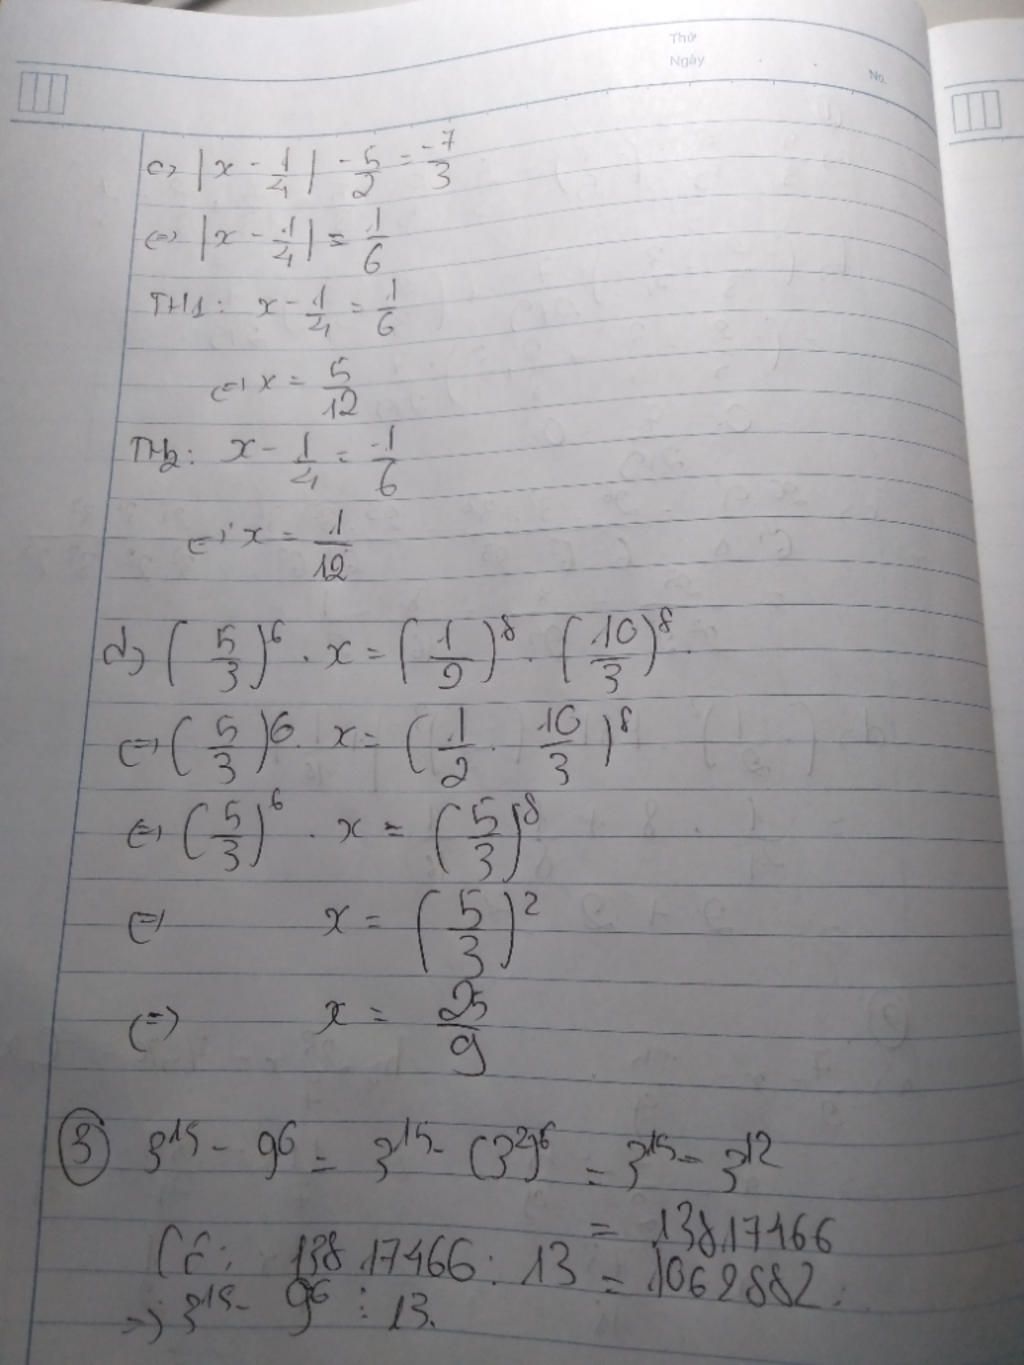 Thứ
Ngày
No.
c) |x - 1/4| - 5/2 = -7/3
(=) |x - 1/4| = 1/6
TH1: x - 1/4 = 1/6
(=) x = 5/12
TH2: x - 1/4 = -1/6
(=) x = 1/12
d) (5/3)^6 . x = (1/2)^8 . (10/3)^8
(=) (5/3)^6 . x = (1/2 . 10/3)^8
(=) (5/3)^6 . x = (5/3)^8
(=) x = (5/3)^2
(=) x = 25/9
③ 3^15 - 9^6 = 3^15 - (3^2)^6 = 3^15 - 3^12
= 13817466
Có: 13817466 : 13 = 1062882.
=) 3^15 - 9^6 ⋮ 13.